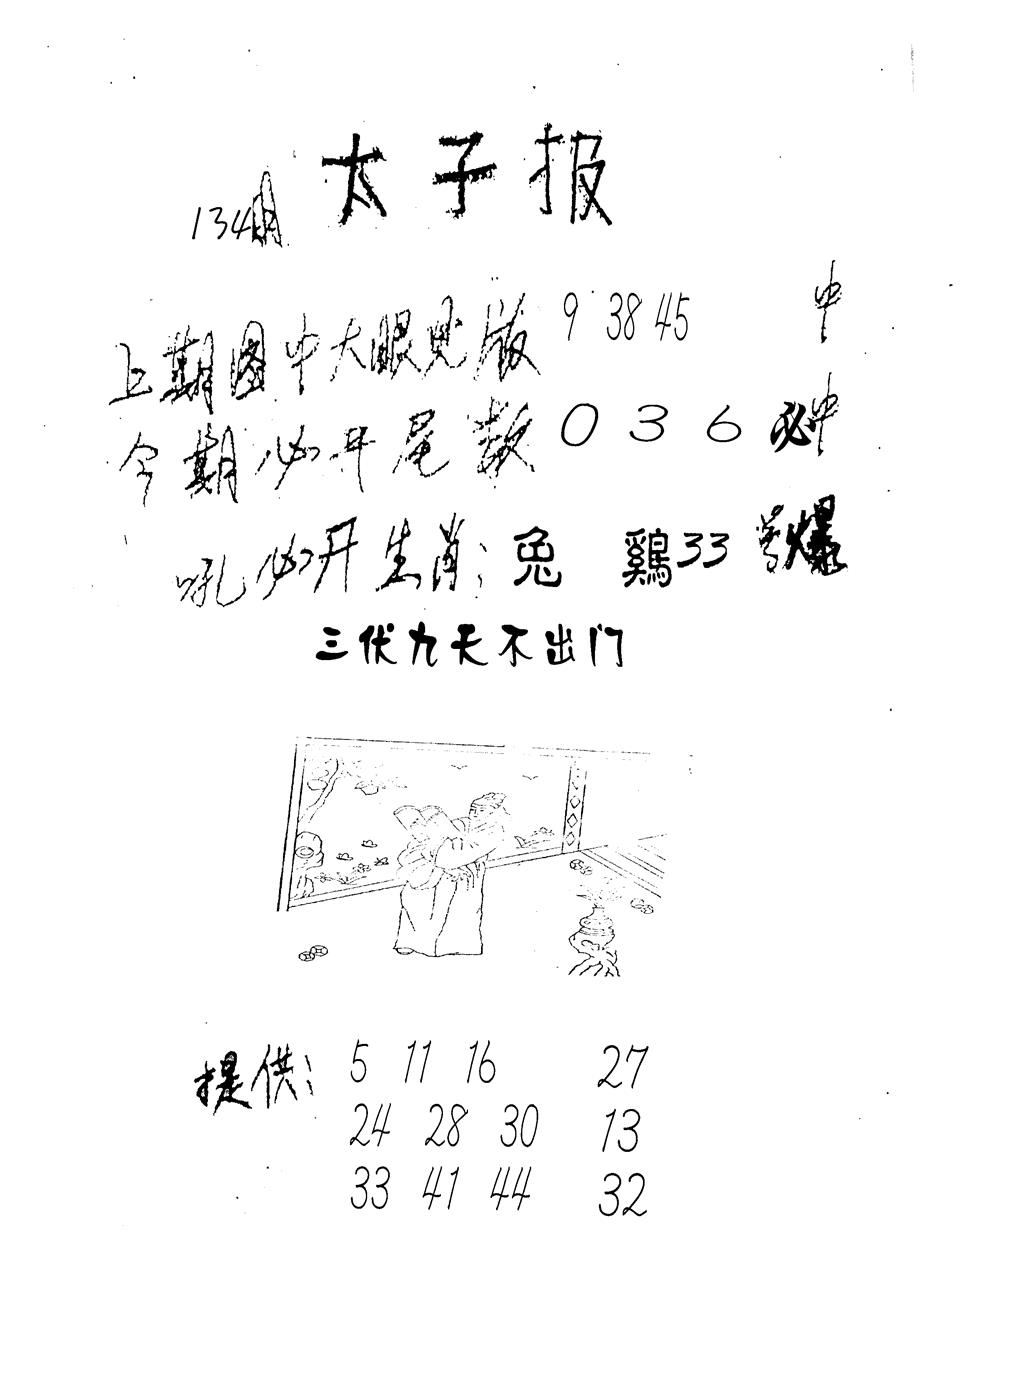 太子报
134期
上期图中大眼见版 9 38 45 中
今期必开尾数 0 3 6 必中
吼必开生肖: 兔 鷄 33 号爆
三伏九天不出门
提供: 5 11 16 27
24 28 30 13
33 41 44 32